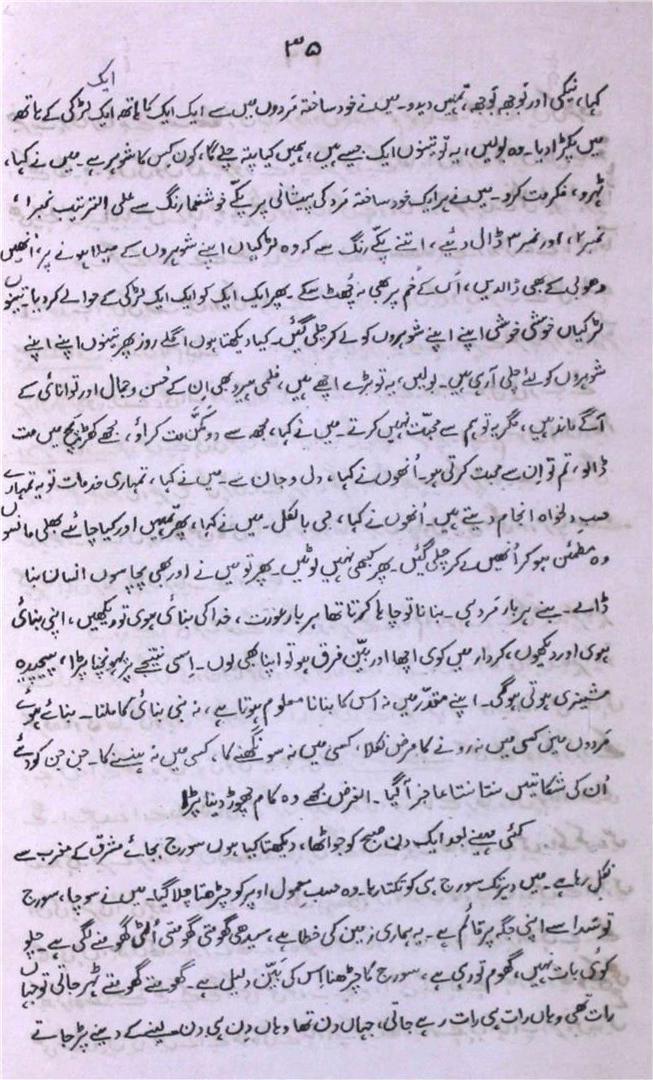 ۳۵
ایک
کہا، نیکی اور پوچھ پوچھ، تمہیں دیدو۔ میں نے خود ساختہ مَردوں میں سے ایک ایک کا ہاتھ ایک لڑکی کے ہاتھ
میں پکڑا دیا۔ وہ بولیں، یہ تو تینوں ایک جیسے ہیں، ہمیں کیا پتہ چلے گا، کون کس کا شوہر ہے۔ میں نے کہا،
ٹہرو، فکر مت کرو۔ میں نے ہر ایک خود ساختہ مَرد کی پیشانی پر پکّے خوشنما رنگ سے علی الترتیب نمبر ۱،
نمبر ۲، اور نمبر ۳ ڈال دیئے، اتنے پکّے رنگ سے کہ وہ لڑکیاں اپنے شوہروں کے میلا ہونے پر، انھیں
دھوبی کے بھی ڈالدیں، اُس کے خُم پر بھی نہ چُھٹ سکے۔ پھر ایک ایک کو ایک ایک لڑکی کے حوالے کر دیا۔ تینوں
لڑکیاں خوشی خوشی اپنے اپنے شوہروں کو لے کر چلی گئیں۔ کیا دیکھتا ہوں اگلے روز پھر تینوں اپنے اپنے
شوہروں کو لئے چلی آ رہی ہیں۔ بولیں، یہ تو بڑے اچھے ہیں، فلمی ہیرو بھی اِن کے حُسن و جمال اور توانائی کے
آگے ماند ہیں، مگر یہ تو ہم سے محبّت نہیں کرتے۔ میں نے کہا، مجھ سے مت کراؤ، مجھے کھڑپیچ میں مت
ڈالو، تم تو اِن سے محبت کرتی ہو۔ اُنھوں نے کہا، دل و جان سے۔ میں نے کہا، تمہاری خدمات تو یہ تمہارے
حسبِ دلخواہ انجام دیتے ہیں۔ اُنھوں نے کہا، جی بالکل۔ میں نے کہا، پھر تمہیں اور کیا چاہئے بھلی مانسوں
وہ مطمئن ہو کر اُنھیں لے کر چلی گئیں۔ پھر کبھی نہیں لوٹیں۔ پھر تو میں نے اور بھی پچاسوں انسان بنا
ڈالے۔ بنے ہر بار مَرد ہی۔ بنانا تو چاہا کرتا تھا ہر بار عورت، خدا کی بنائی ہوی تو دیکھیں، اپنی بنائی
ہوی اور دیکھوں، کردار میں کوی اچھا اور بیّن فرق ہو تو اپنا بھی لوں۔ اِسی نتیجے پر پہونچنا پڑا، پیچیدہ
مشینری ہوتی ہوگی۔ اپنے مقدّر میں نہ اس کا بنانا معلوم ہوتا ہے، نہ بنی بنائی کا ملنا۔ بنائے ہوئے
مَردوں میں کسی میں نہ رونے کا مرض نکلا، کسی میں نہ سونگھنے کا، کسی میں نہ ہنسنے کا۔ جن جن کو دئے
اُن کی شکایتیں سنتا سنتا عاجز آ گیا۔ الغرض مجھے وہ کام چھوڑ دینا پڑا
کئی مہینے بعد ایک دن صبح کو جو اٹھا، دیکھتا کیا ہوں سورج بجائے مشرق کے مغرب سے
نکل رہا ہے۔ میں دیر تک سورج ہی کو تکتا رہا۔ وہ حسب معمول اوپر کو چڑھتا چلا گیا۔ میں نے سوچا، سورج
تو سدا سے اپنی جگہ پر قائم ہے۔ یہ ہماری زمین کی خطا ہے، سیدھی گھومتی گھومتی اُلٹی گھومنے لگی ہے چلو
کوئی بات نہیں، گھوم تو رہی ہے، سورج کا چڑھنا اِس کی بیّن دلیل ہے۔ گھومتے گھومتے ٹہر جاتی تو جہاں
رات تھی وہاں رات ہی رات رہے جاتی، جہاں دن تھا وہاں دن ہی دن۔ لینے کے دینے پڑ جاتے